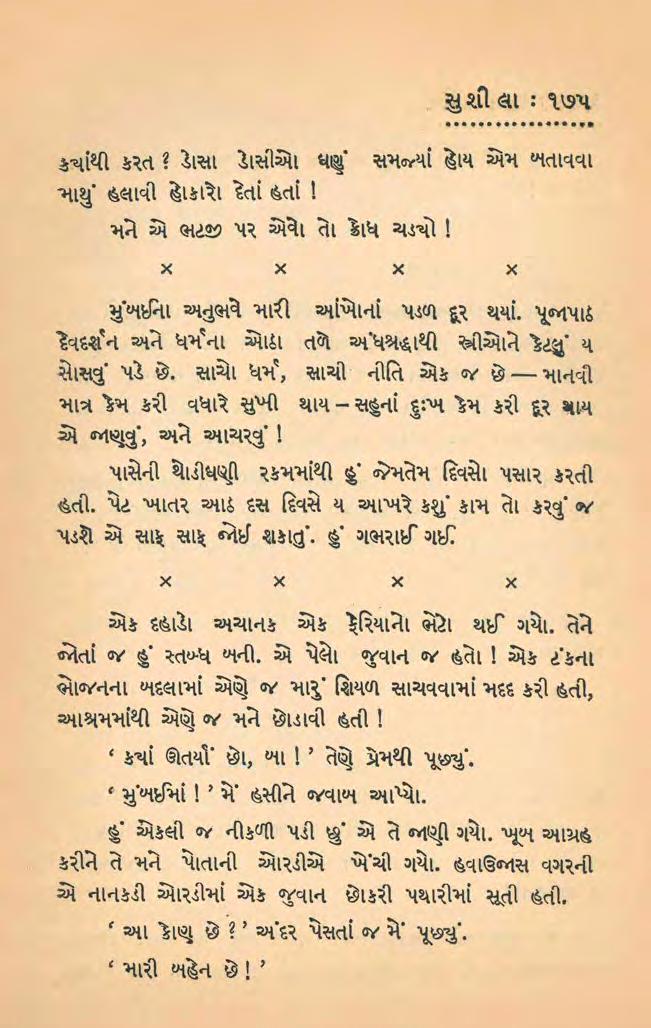 સુશીલા : ૧૭૫
ક્યાંથી કરત ? ડોસા ડોસીઓ ઘણું સમજ્યાં હોય એમ બતાવવા
માથું હલાવી હોકારો દેતાં હતાં !
મને એ ભટજી પર એવો તો ક્રોધ ચડ્યો !
× × × ×
મુંબઈના અનુભવે મારી આંખોનાં પડળ દૂર થયાં. પૂજાપાઠ
દેવદર્શન અને ધર્મના ઓઠા તળે અંધશ્રદ્ધાથી સ્ત્રીઓને કેટલું ય
સોસવું પડે છે. સાચો ધર્મ, સાચી નીતિ એક જ છે — માનવી
માત્ર કેમ કરી વધારે સુખી થાય – સહુનાં દુઃખ કેમ કરી દૂર થાય
એ જાણવું, અને આચરવું !
પાસેની થોડીઘણી રકમમાંથી હું જેમતેમ દિવસો પસાર કરતી
હતી. પેટ ખાતર આઠ દસ દિવસે ય આખરે કશું કામ તો કરવું જ
પડશે એ સાફ સાફ જોઈ શકાતું. હું ગભરાઈ ગઈ.
× × × ×
એક દહાડો અચાનક એક ફેરિયાનો ભેટો થઈ ગયો. તેને
જોતાં જ હું સ્તબ્ધ બની. એ પેલો જુવાન જ હતો ! એક ટંકના
ભોજનના બદલામાં એણે જ મારું શિયળ સાચવવામાં મદદ કરી હતી,
આશ્રમમાંથી એણે જ મને છોડાવી હતી !
‘ ક્યાં ઊતર્યાં છો, બા ! ’ તેણે પ્રેમથી પૂછ્યું.
‘ મુંબઈમાં ! ’ મેં હસીને જવાબ આપ્યો.
હું એકલી જ નીકળી પડી છું એ તે જાણી ગયો. ખૂબ આગ્રહ
કરીને તે મને પોતાની ઓરડીએ ખેંચી ગયો. હવાઉજાસ વગરની
એ નાનકડી ઓરડીમાં એક જુવાન છોકરી પથારીમાં સૂતી હતી.
‘ આ કોણ છે ? ’ અંદર પેસતાં જ મેં પૂછ્યું.
‘ મારી બહેન છે ! ’